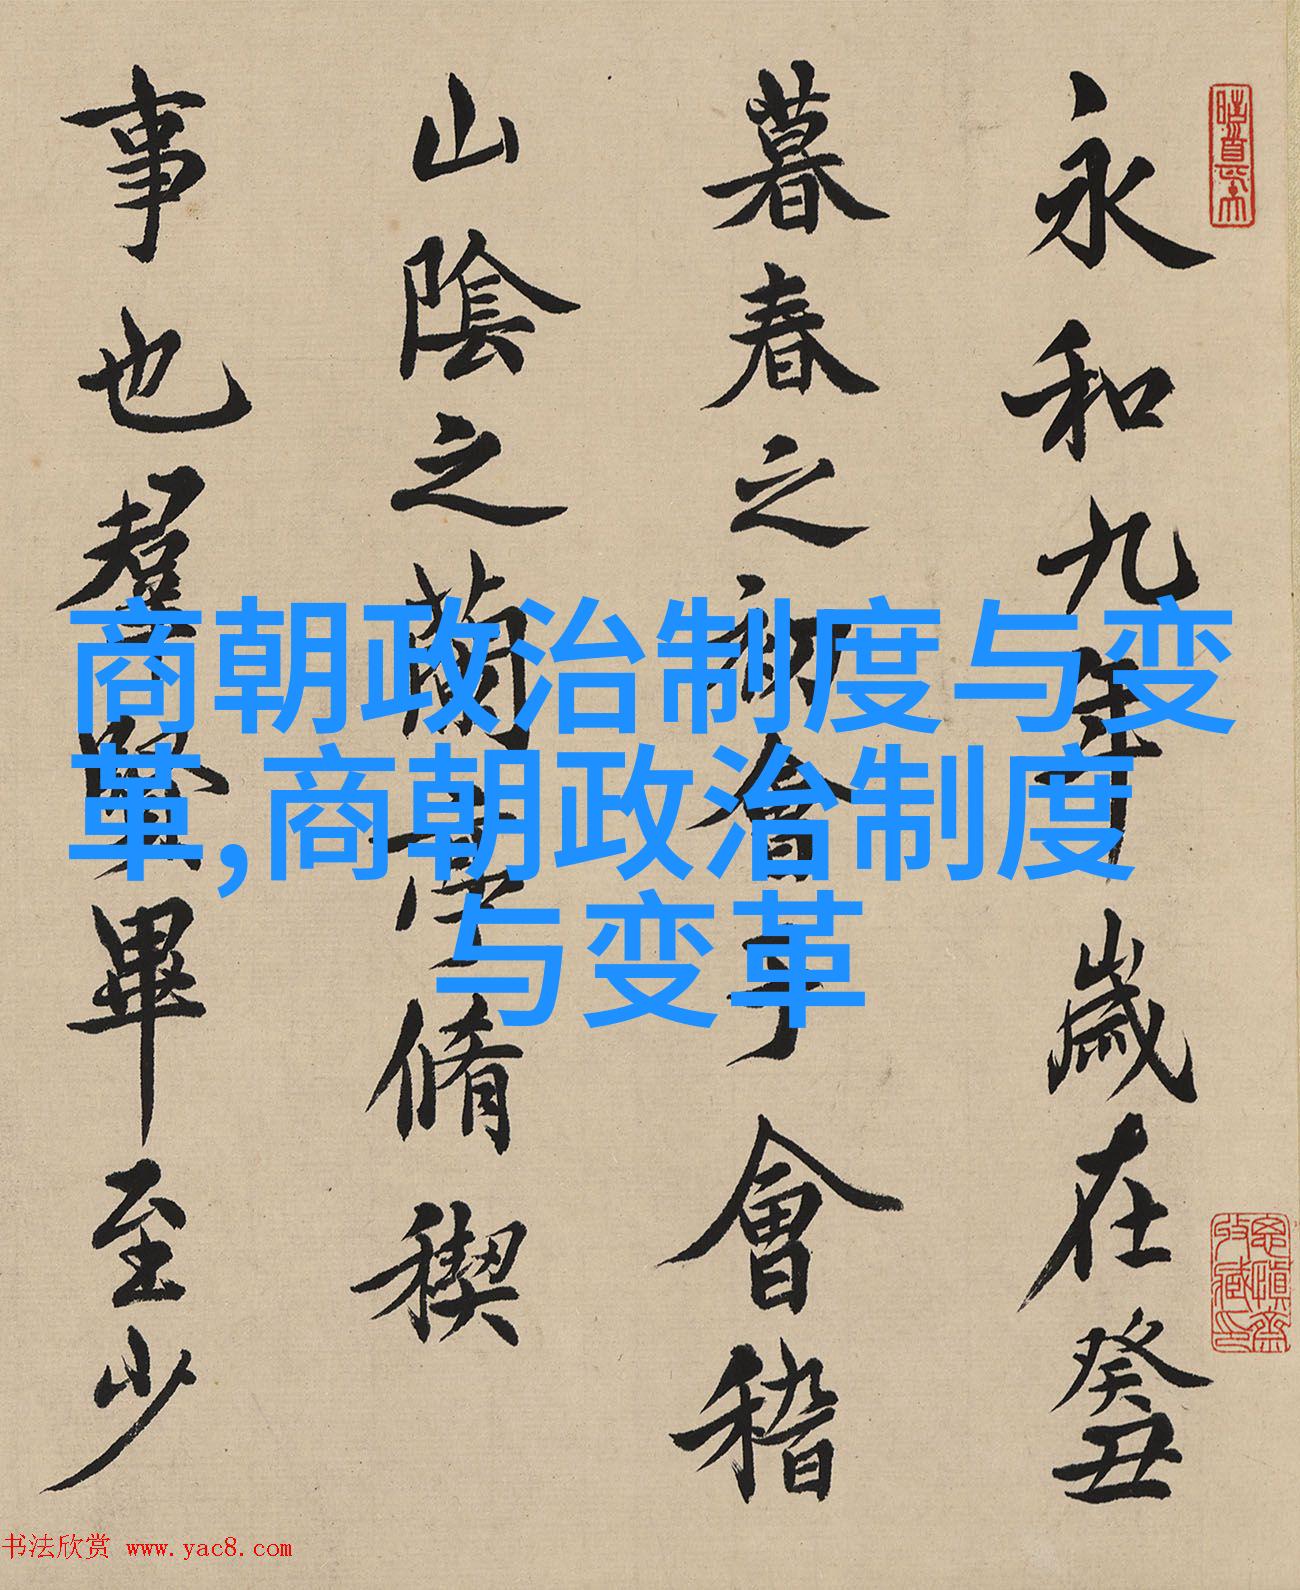 永和九年歲在癸丑
暮春之初會于會稽
山陰之蘭亭脩稧
事也羣賢畢至少
商朝政治制度与变
革,商朝政治制度
与变革
书法欣赏 www.yac8.com